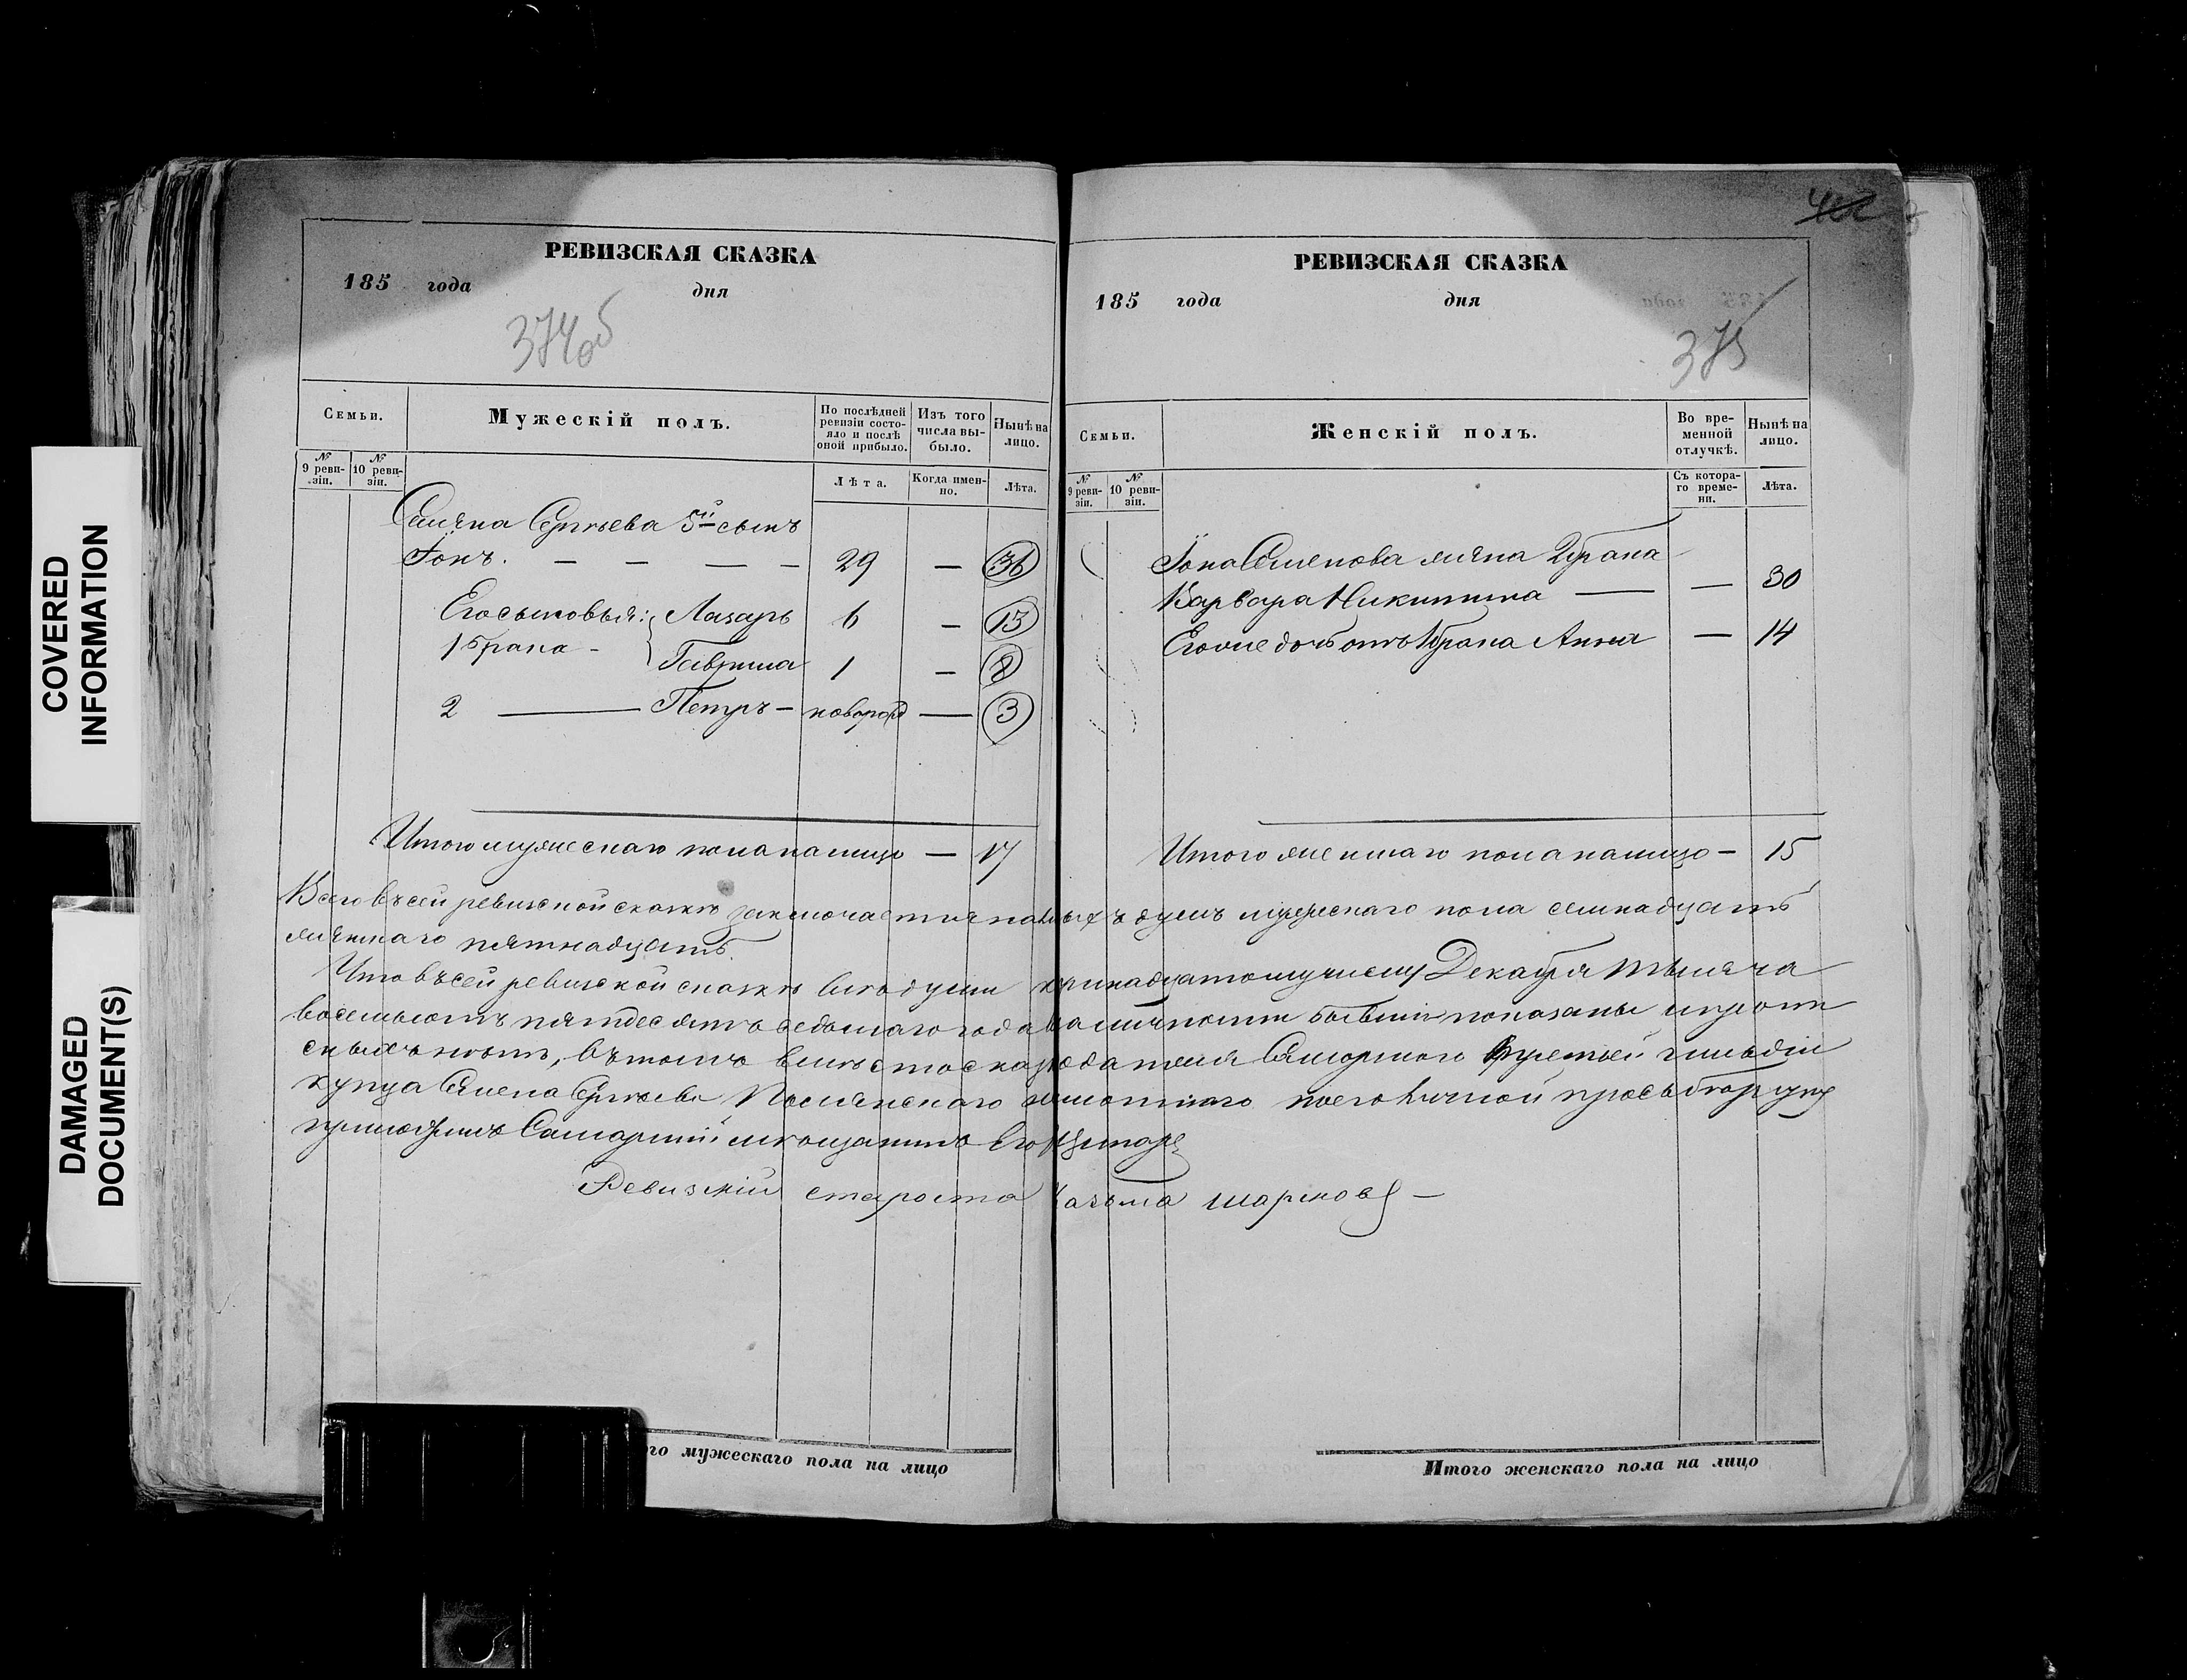 COVERED
INFORMATION
DAMAGED
DOCUMENT(S)
РЕВИЗСКАЯ СКАЗКА
185 года дня
374об
Семьи.
Мужескій полъ.
По послѣдней ревизіи состояло и послѣ оной прибыло.
Изъ того числа выбыло.
Нынѣ на лицо.
№ 9 ревизіи.
№ 10 ревизіи.
Лѣта.
Когда именно.
Лѣта.
Семена Сергѣева 5й сынъ
Іонъ. — — — — 29 — 36
Его сыновья: Лазарь 6 — 13
1 брака - Гаврила 1 — 8
2 — Петръ - новорожд — 3
Итого мужескаго пола налицо — 17
РЕВИЗСКАЯ СКАЗКА
185 года дня
375
Семьи.
Женскій полъ.
Во временной отлучкѣ.
Нынѣ на лицо.
№ 9 ревизіи.
№ 10 ревизіи.
Съ котораго времени.
Лѣта.
Іона Семенова жена 2 брака
Варвара Никитина — — 30
Его же дочь отъ 1 брака Анна — 14
Итого женскаго пола налицо — 15
Всего въ сей ревизской сказкѣ заключается наличныхъ душъ мужескаго пола семнадцать
женскаго пятнадцать.
Что въ сей ревизской сказкѣ всѣ души к принадцатому числу Декабря тысяча
восемьсотъ пятдесятъ седьмаго года в наличности бывшія показаны и прописныхъ нѣтъ, въ томъ вмѣсто сказкодателя Самарнаго третьей гильдіи
купца Семена Сергѣева неграмотнаго по его личной просьбѣ руку
приложилъ Самарскій мѣщанинъ
Ревизскій староста казьма шарновъ —
го мужескаго пола на лицо
Итого женскаго пола на лицо